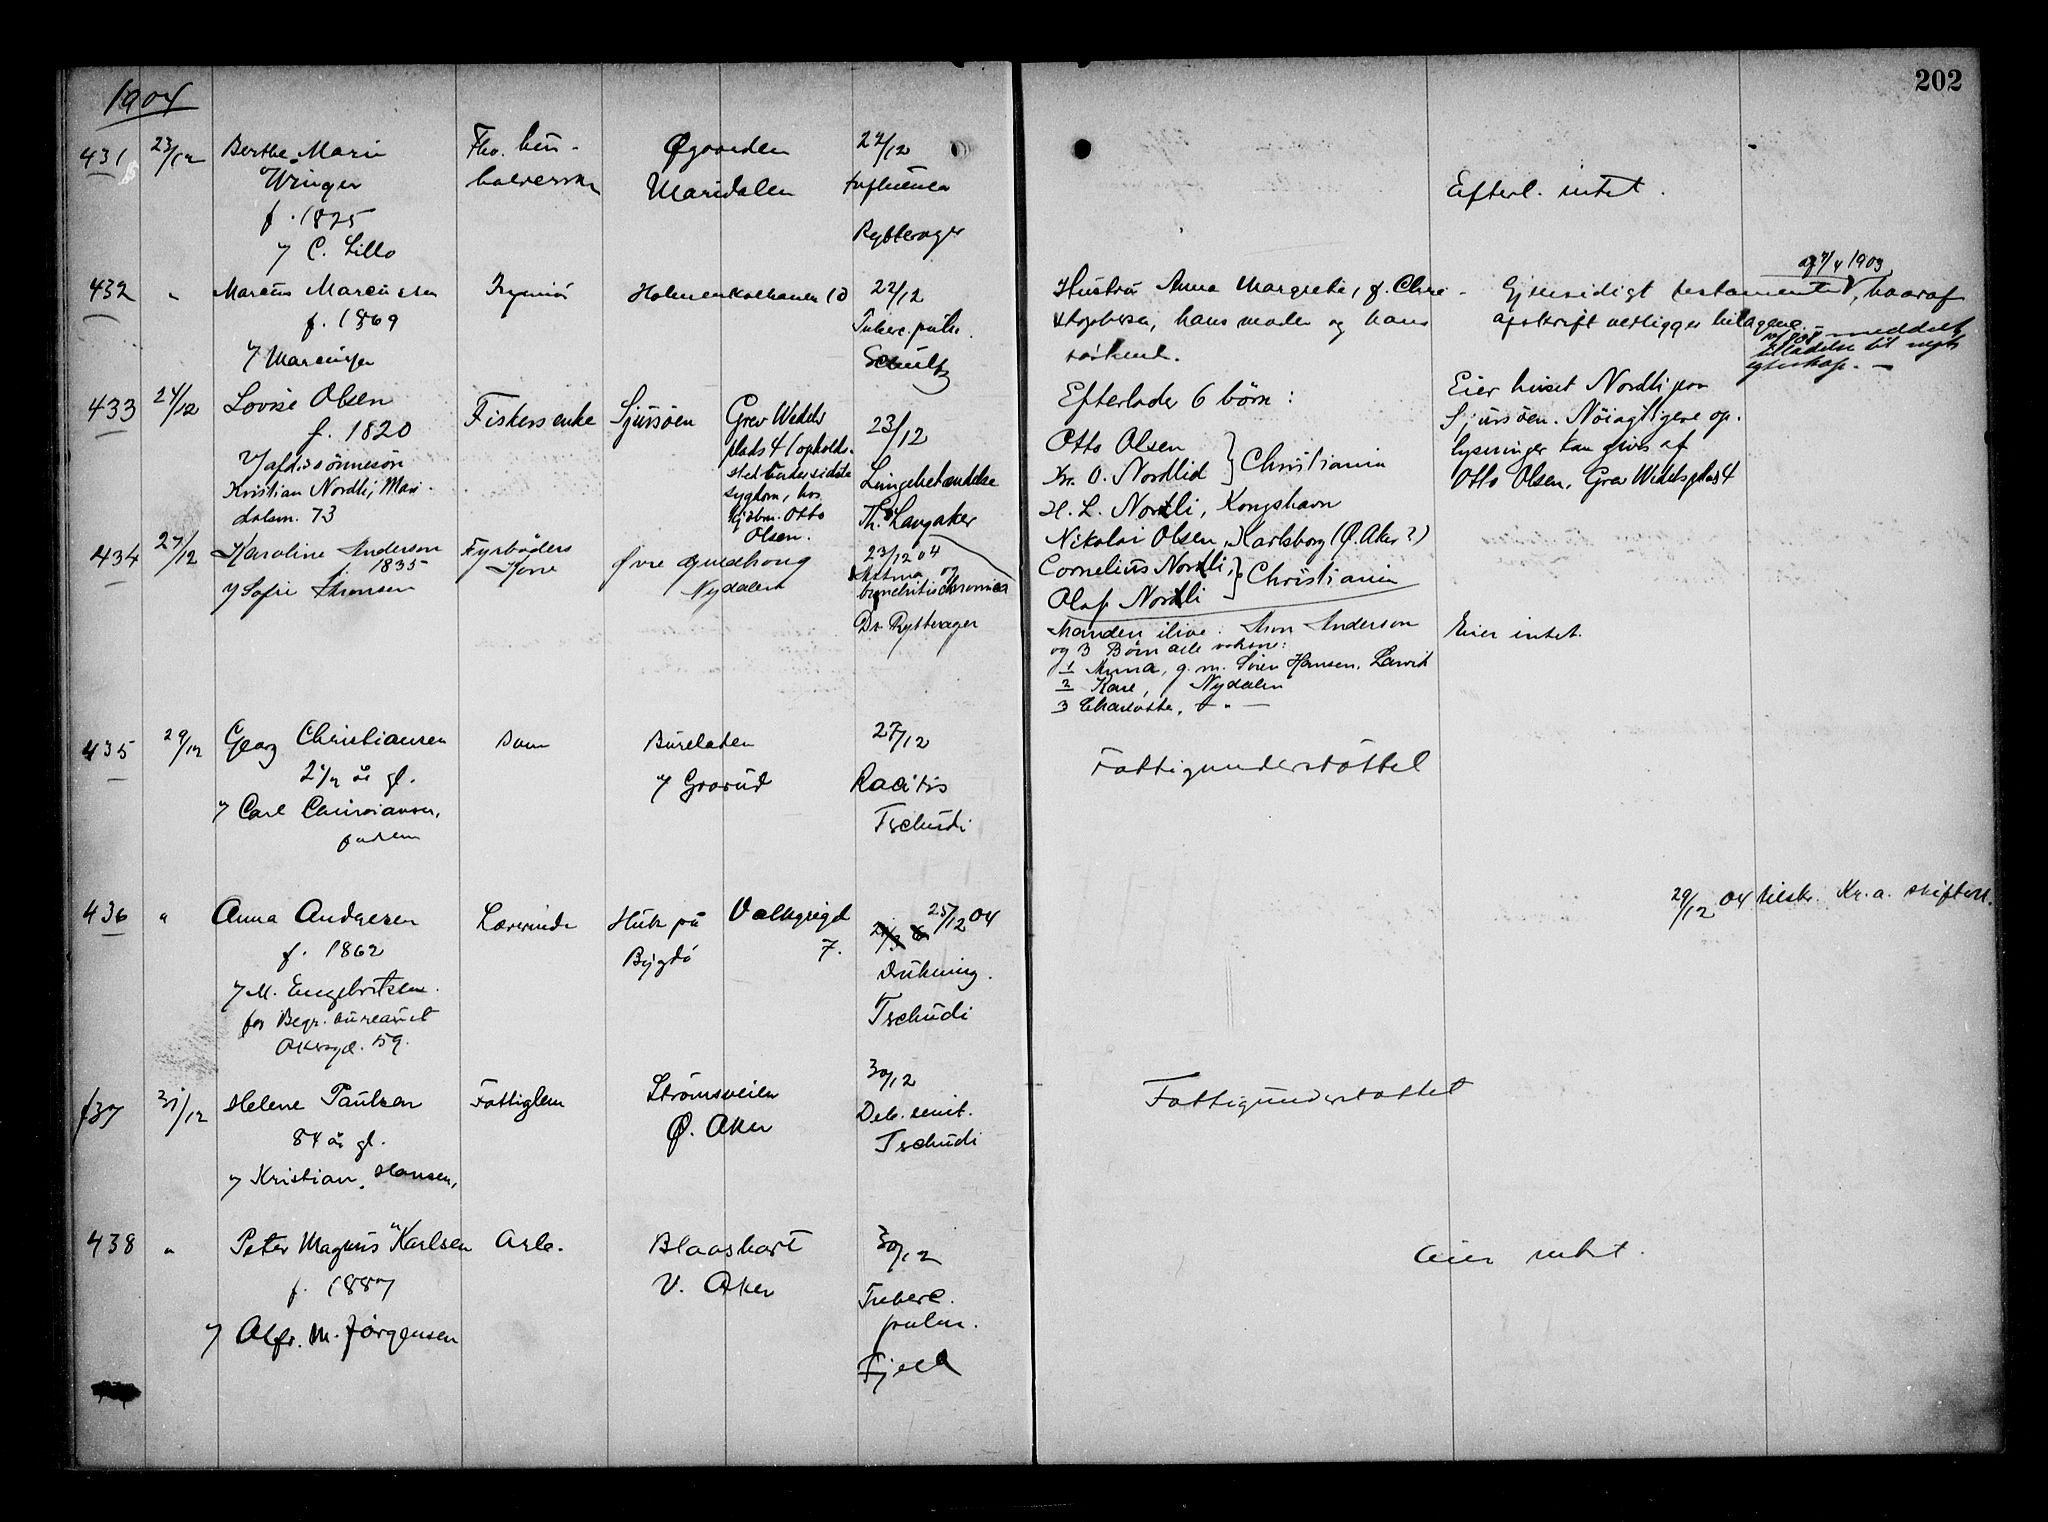 1904
202
431 23/12 Berthe Marie
Winger
f. 1825
v/ C. Lillo
Fhv. hus-
holderske
Øgaarden
Maridalen
22/12
Influensa
Ryttrager
Efterl. intet.
432 " Marcus Marcussen
f. 1869
v/ Marcussen
Holmenkolbanen 10
22/12
Tuberc. pulm.
Schultz
Hustru Anna Margrete, f. Chri-
stophersen, hans moder og hans
søskend.
af 7/4 1903
Gjensidigt testamente, hvoraf
afskrift vedligger bilagene.
meddelt
tilladelse til
egteskap. —
433 24/12 Lovise Olsen
f. 1820
v/ afd.s sønnesøn
Kristian Nordli, Mari-
dalsv. 73
Fiskersenke
Sjursøen
Grev Wedels
plads 4 (opholds-
sted under sidste
sygdom, hos
kjøbm. Otto
Olsen.
23/12
Lungebetændelse
Th. Langaker
Efterlader 6 børn:
Otto Olsen
Kr. O. Nordlid } Christiania
H. L. Nordli, Kongshavn
Nikolai Olsen, Karlsborg (Ø. Aker?)
Cornelius Nordli, } Christiania
Olaf Nordli
Eier huset Nordli paa
Sjursøen. Nøiagtigere op-
lysninger kan gives af
Otto Olsen, Grev Wedels plads 4
434 27/12 Karoline Anderson
1835
v/ Sofie Thronsen
Fyrbøders
Kone
Øvre
Nydalen
23/12 04
Astma og
bronchitis chronica
Dr. Ryttrager
Manden ilive: Anderson
og 3 Børn alle voksne:
1 Anna, g. m. Søren Hansen, Larvik
2 Karl, Nydalen
3 Charlotte, — " —
Eier intet.
435 29/12 Georg Christiansen
2 1/2 år gl.
v/ Carl Christiansen,
faderen
Barn
Bureløkken
v/ Grorud
27/12
Racitis
Tschudi
Fattigunderstøttet
436 " Anna Andresen
f. 1862
v/ M. Engebritsen
for Begr. bureauet
Akersgd. 59.
Lærerinde
Huk på
Bygdø
Valkyriegd
7.
25/12 04
Drukning.
Tschudi
29/12 04 tilskr. Kr.a. skifter.
437 31/12 Helene Paulsen
84 år gl.
v/ Kristian Hansen,
Fattiglem
Strømsveien
Ø. Aker
30/12
Deb. senil.
Tschudi
Fattigunderstøttet
438 " Peter Magnus Karlsen
f. 1887
v/ Alfr. M. Jørgensen
Arb.
V. Aker
30/12
Tuberc.
pulm.
Fjeld
Eier intet.